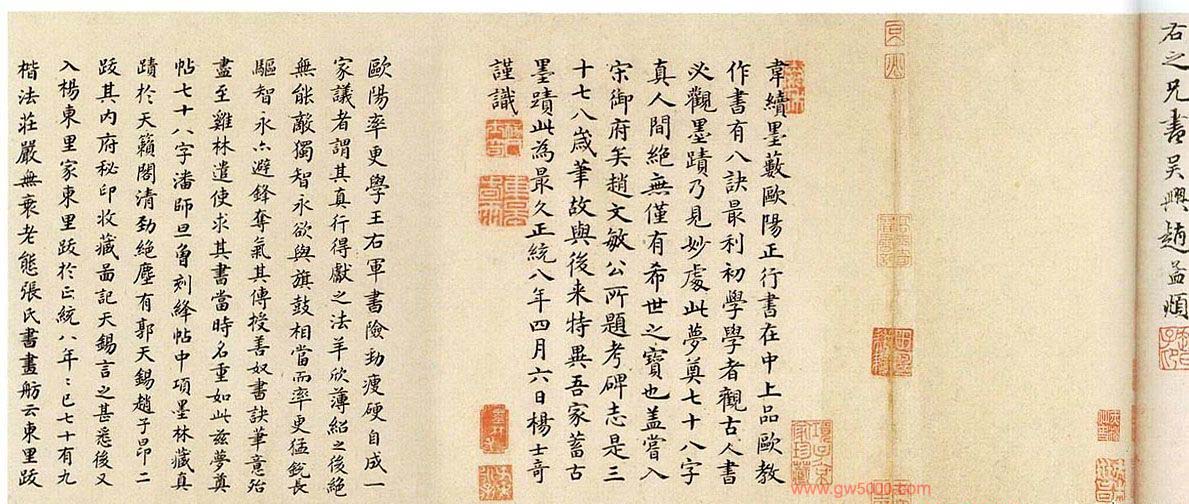 右之兄書吴興趙孟頫
韋續墨藪歐陽正行書在中上品歐教
作書有八訣最利初學學者觀古人書
必觀墨蹟乃見妙處此夢奠七十八字
真人間絶無僅有希世之寶也盖嘗入
宋御府矣趙文敏公所題考碑志是三
十七八歳筆故與後来特異吾家蓄古
墨蹟此為最久正統八年四月六日楊士竒
謹識
歐陽率更學王右軍書險勁瘦硬自成一
家議者謂其真行得獻之法羊欣薄紹之後絶
無能敵獨智永欲與旗鼓相當而率更猛鋭長
驅智永亦避鋒奪氣其傳授善奴書訣筆意殆
盡至雞林遣使求其書當時名重如此兹夢奠
帖七十八字潘師旦曾刻絳帖中項墨林藏真
蹟於天籟閣清勁絶塵有郭天錫趙子昂二
跋其内府秘印收藏啚記天錫言之甚悉後又
入楊東里家東里跋於正統八年年已七十有九
楷法莊嚴無衰老態張氏書畫舫云東里跋
www.gw5000.com